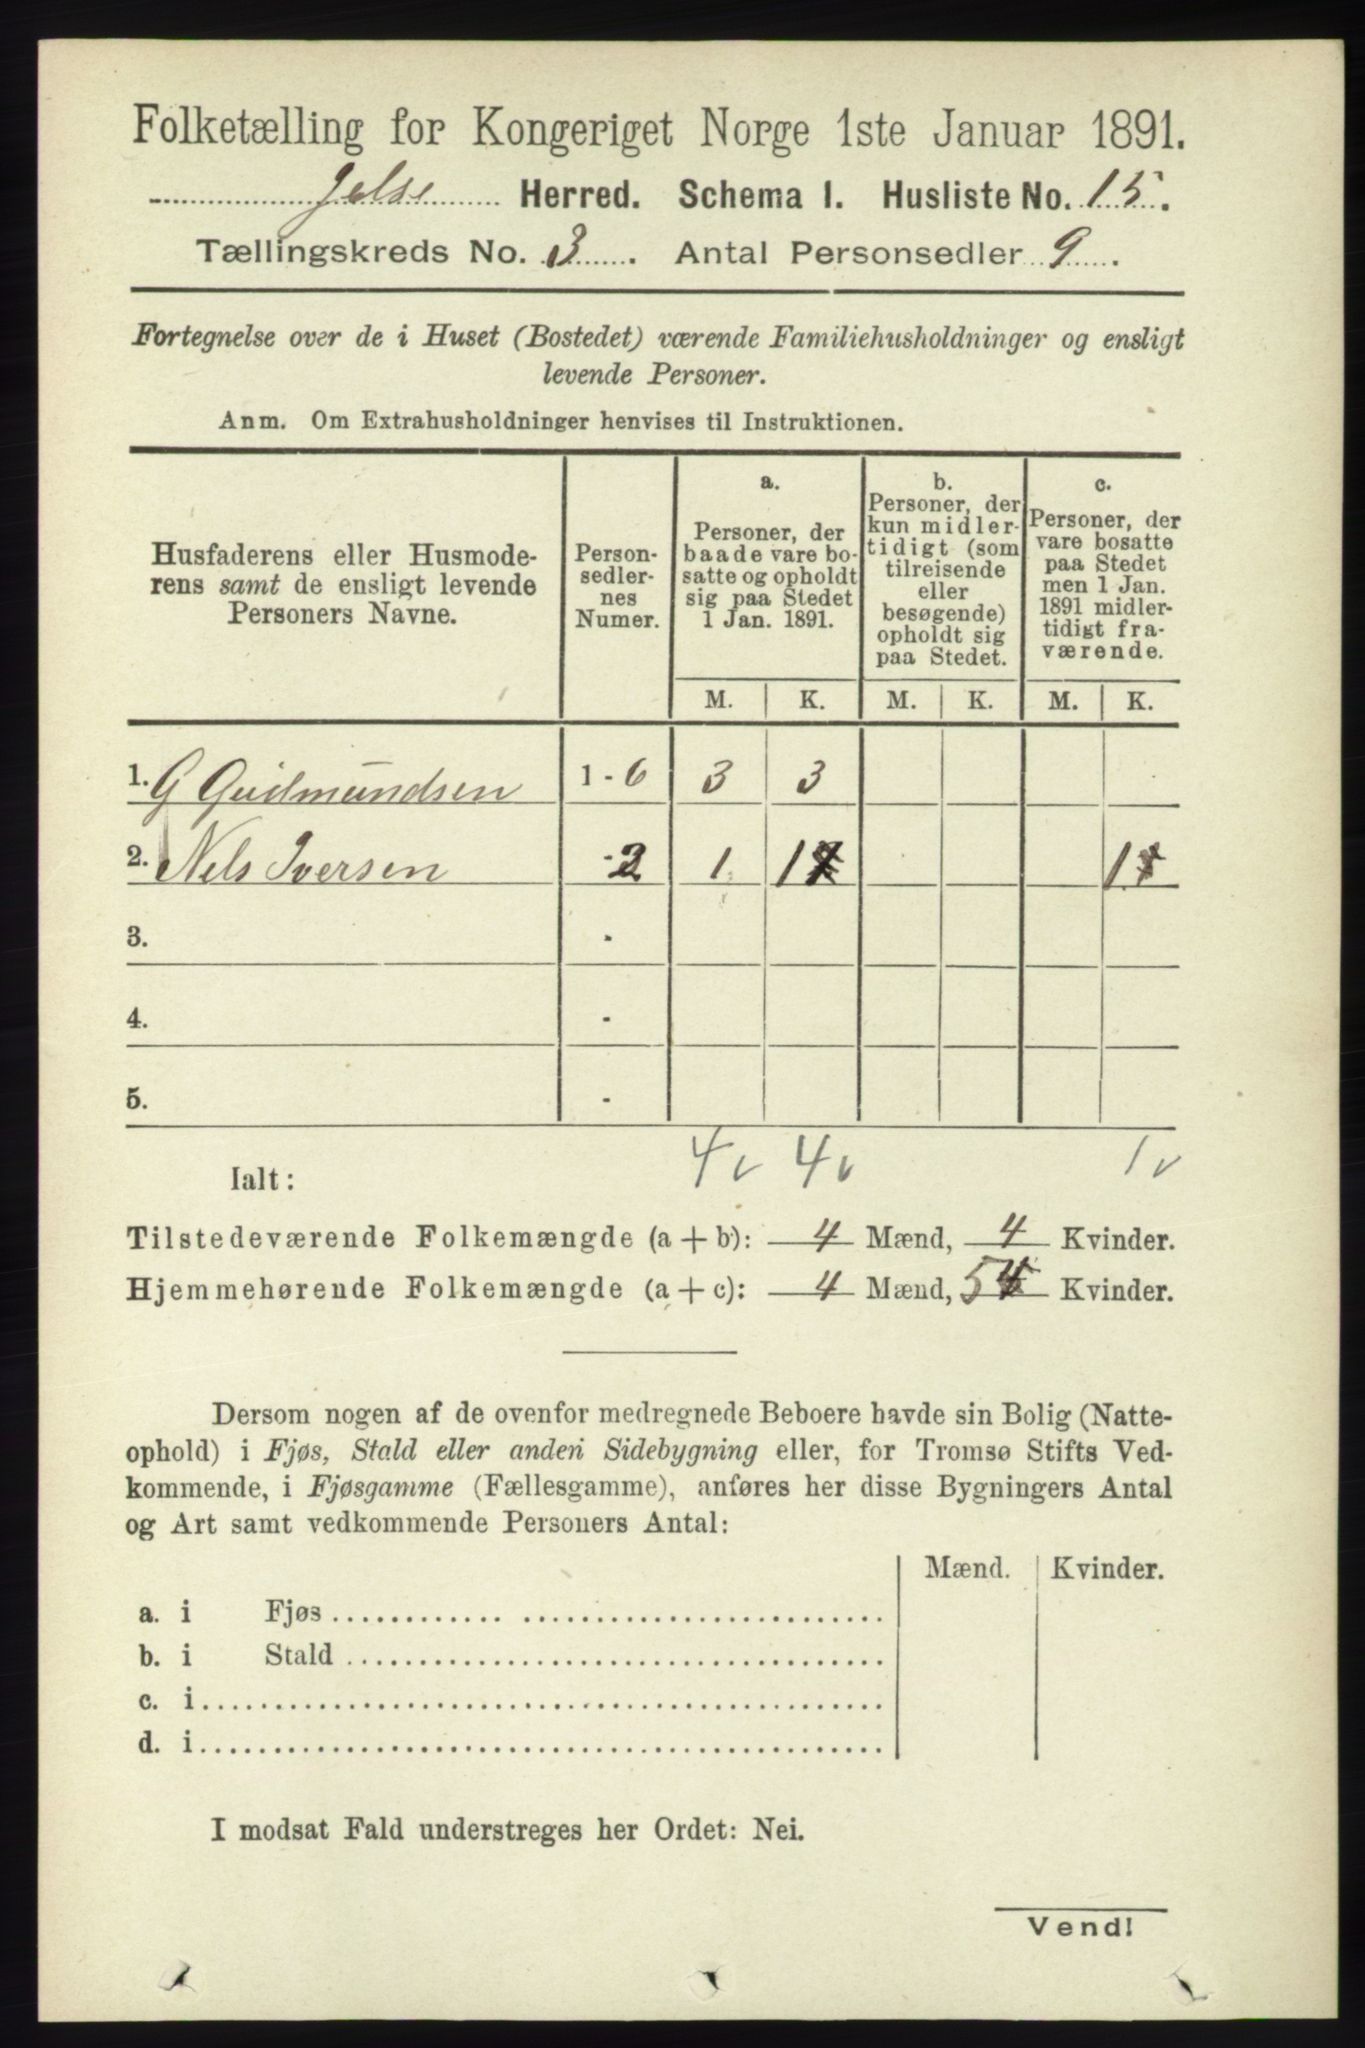 Folketælling for Kongeriget Norge 1ste Januar 1891.
Jelse Herred. Schema I. Husliste No. 15.
Tællingskreds No. 3. Antal Personsedler 9.
Fortegnelse over de i Huset (Bostedet) værende Familiehusholdninger og ensligt
levende Personer.
Anm. Om Extrahusholdninger henvises til Instruktionen.
Husfaderens eller Husmode-
rens samt de ensligt levende
Personers Navne.
Person-
sedler-
nes
Numer.
a.
Personer, der
baade vare bo-
satte og opholdt
sig paa Stedet
1 Jan. 1891.
b.
Personer, der
kun midler-
tidigt (som
tilreisende
eller
besøgende)
opholdt sig
paa Stedet.
c.
Personer, der
vare bosatte
paa Stedet
men 1 Jan.
1891 midler-
tidigt fra-
værende.
M. K. M. K. M. K.
1. G Gudmundsen 1 - 6 3 3
2. Nels Iversen - 2 1 1 1
3. -
4. -
5. -
Ialt: 4 v 4 v 1 v
Tilstedeværende Folkemængde (a + b): 4 Mænd, 4 Kvinder.
Hjemmehørende Folkemængde (a + c): 4 Mænd, 5 Kvinder.
Dersom nogen af de ovenfor medregnede Beboere havde sin Bolig (Natte-
ophold) i Fjøs, Stald eller anden Sidebygning eller, for Tromsø Stifts Ved-
kommende, i Fjøsgamme (Fællesgamme), anføres her disse Bygningers Antal
og Art samt vedkommende Personers Antal:
Mænd. Kvinder.
a. i Fjøs
b. i Stald
c. i
d. i
I modsat Fald understreges her Ordet: Nei.
Vend!